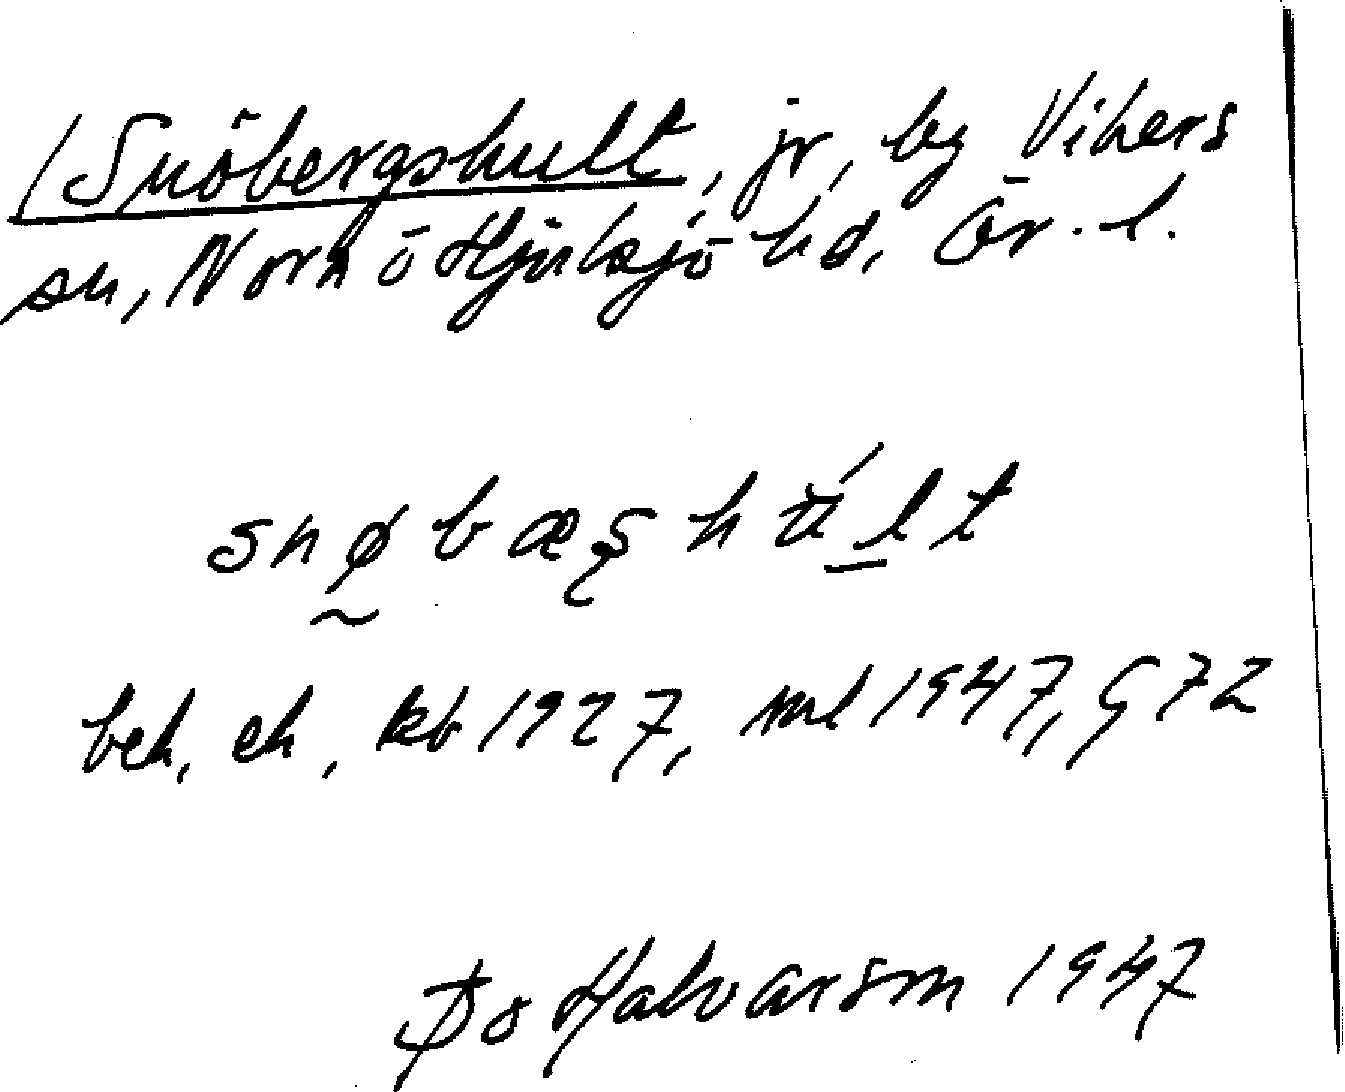 Snöbergshult, jr, by Vikers
sn, Nora o Hjulsjö hd, Ör. l.
snøbæʂhúlt
bek, ek, kb 1927, ml 1947, G72
Halvarson 1947